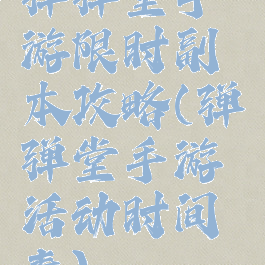 弹弹堂手
游限时副
本攻略(弹
弹堂手游
活动时间
表)